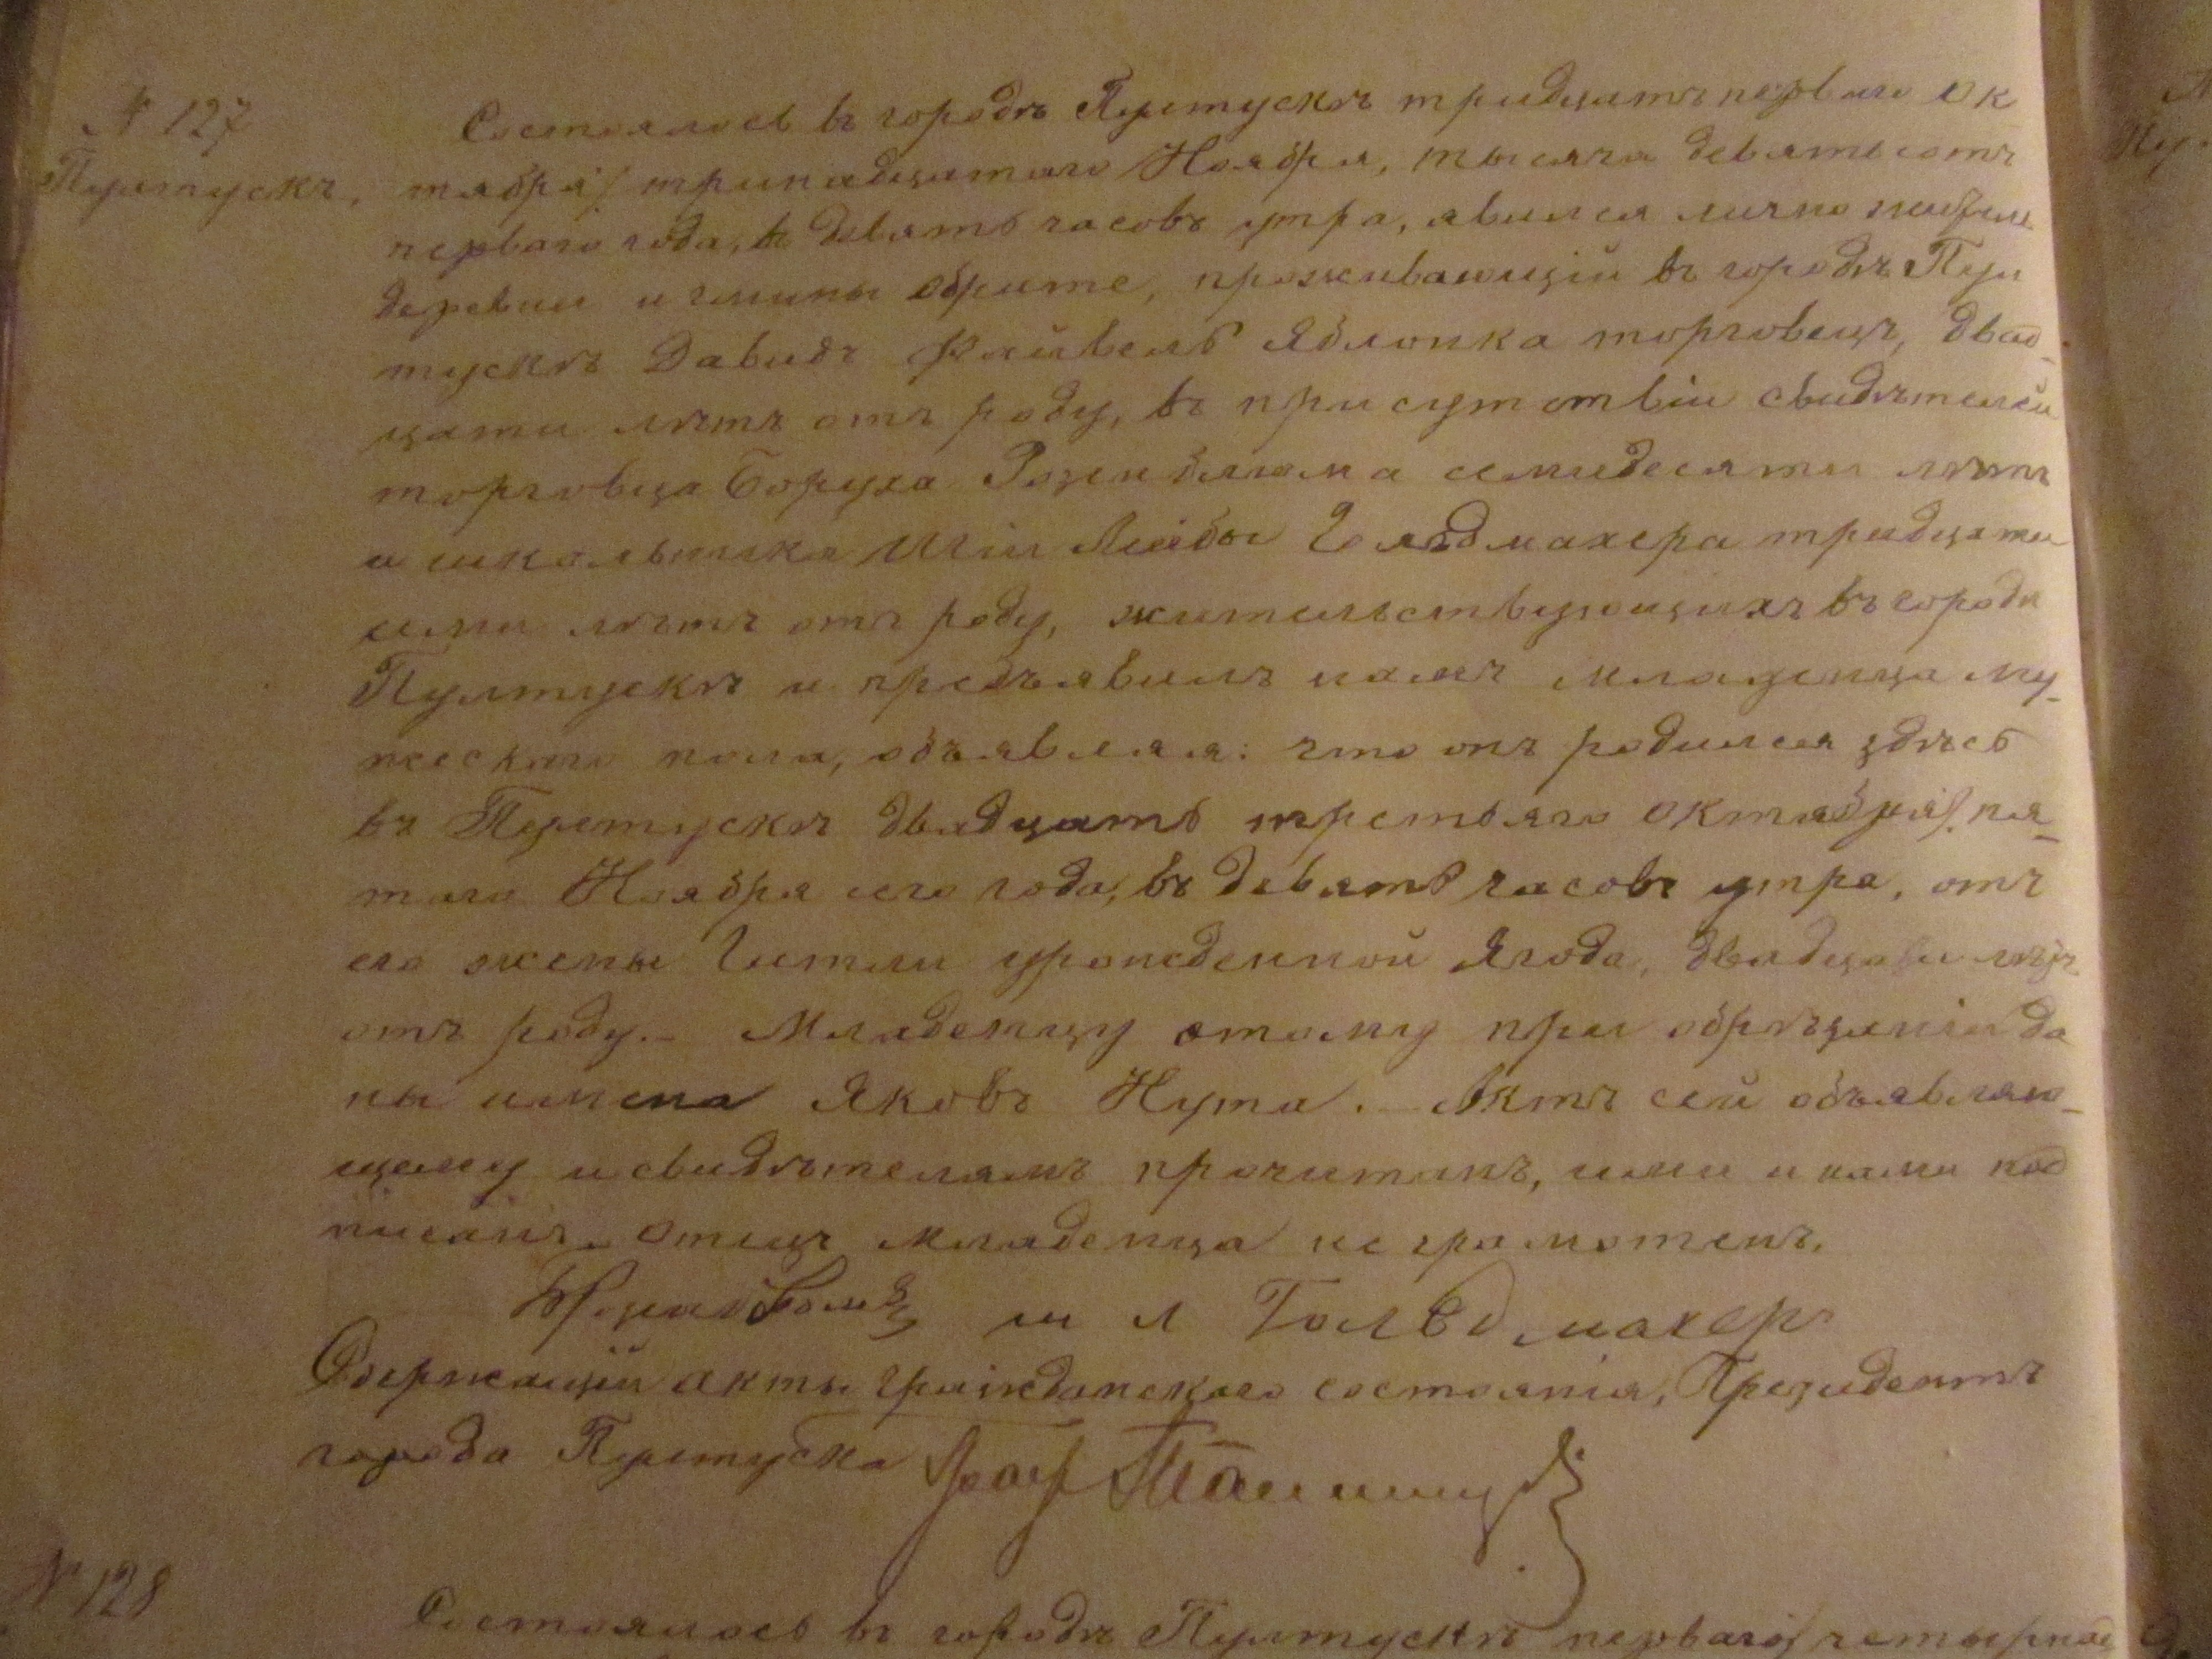 № 127
Пултускъ.
Состоялось въ городѣ Пултускѣ тридцать перваго Ок
тября/ тринадцатаго Ноября, тысяча девятьсотъ
перваго года, въ девять часовъ утра, явился лично
деревни и гмины Обрите, проживающій въ городѣ Пул
тускѣ Давидъ Файвель Яблонка торговецъ, двад-
цати лѣтъ отъ роду, въ присутствіи свидѣтелей
торговца Боруха Розенблюма семидесяти лѣтъ
и школьника Шіи Лейбы Гольдмахера тридцати
семи лѣтъ отъ роду, жительствующихъ въ городѣ
Пултускѣ и предъявилъ намъ младенца му-
жескаго пола, объявляя: что онъ родился здѣсь
въ Пултускѣ двадцать третьяго Октября/ пя-
таго Ноября сего года, въ девять часовъ утра, отъ
его жены урожденной Ягода, двадцати лѣтъ
отъ роду.- Младенцу этому при обрѣзаніи да
ны имена Яковъ Нута. - Актъ сей объявляю-
щему и свидѣтелямъ прочитанъ, ими и нами под
писанъ. Отецъ младенца не грамотенъ.
ш л Гольдмахеръ
Содержащій акты гражданскаго состоянія, Президентъ
города Пултуска
№ 128
Состоялось въ городѣ Пултускѣ перваго/ четырнад